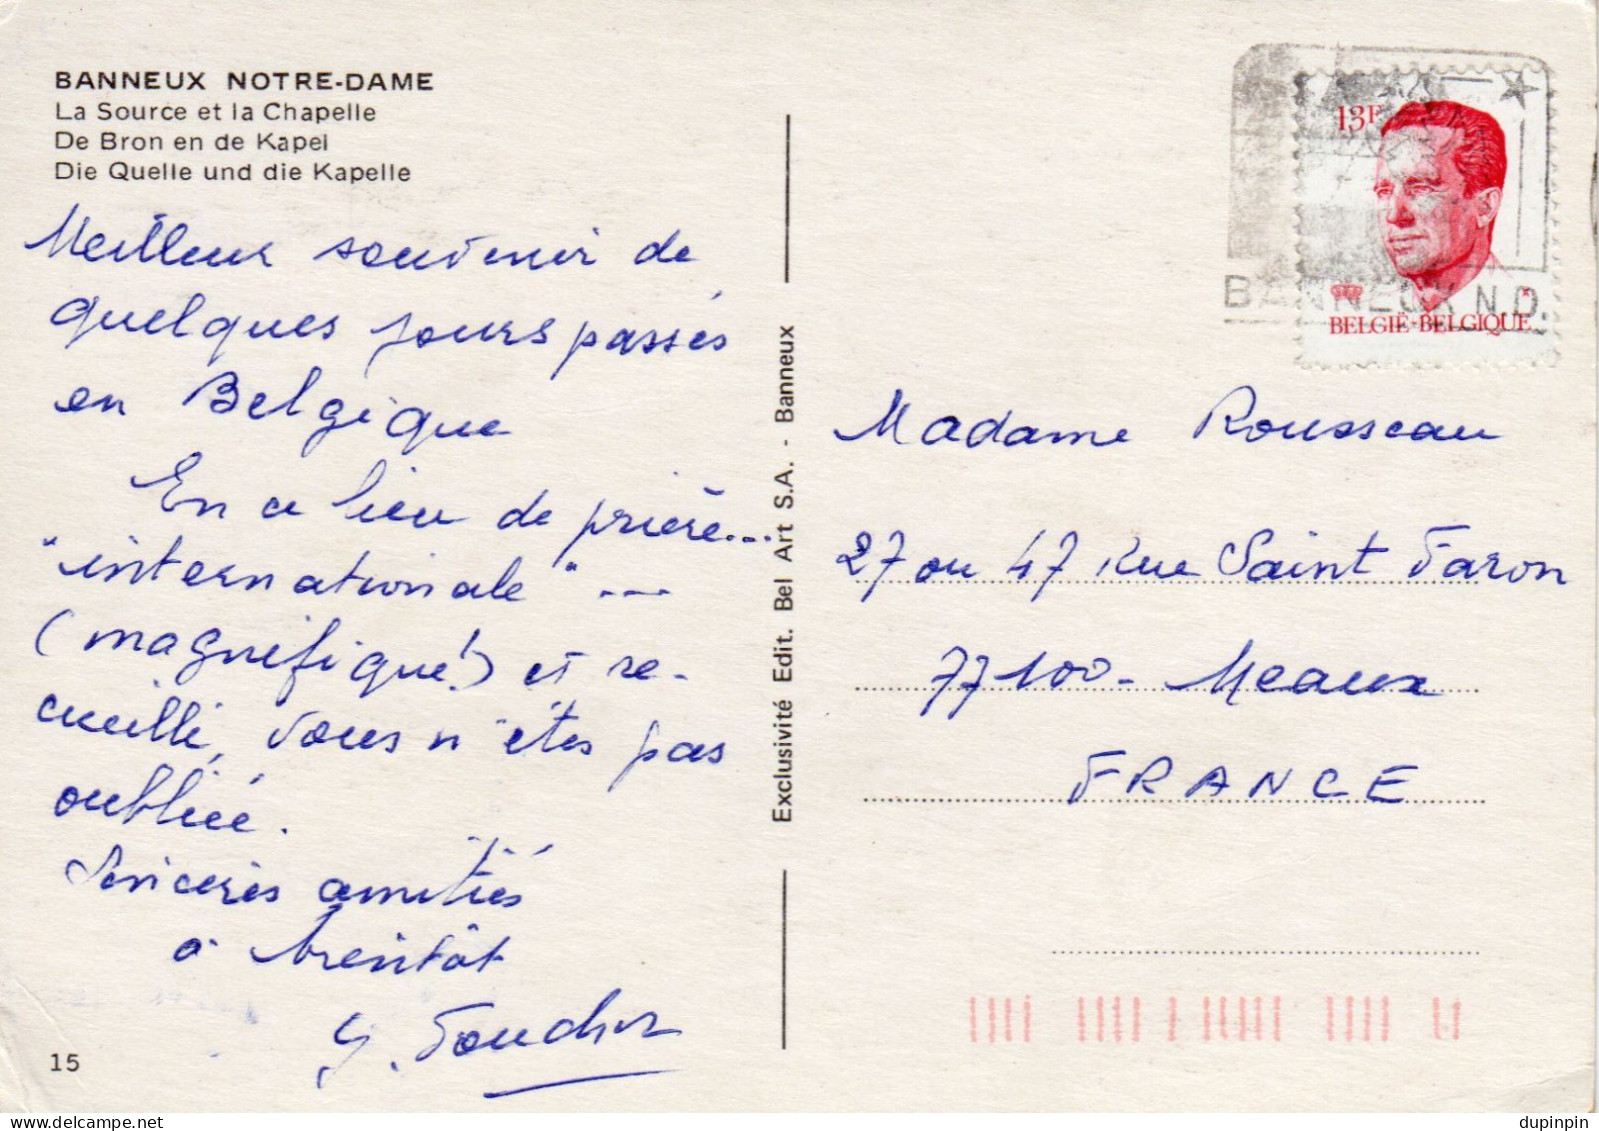 BANNEUX NOTRE-DAME
La Source et la Chapelle
De Bron en de Kapel
Die Quelle und die Kapelle
Meilleur souvenir de
quelques jours passés
en Belgique
En ce lieu de prière...
"internationale" ...
(magnifique!) et re-
cueilli, vous n'êtes pas
oubliée.
Sincères amitiés
à bientôt
15
Exclusivité Edit. Bel Art S.A. - Banneux
13F
BELGIË-BELGIQUE
BANNEUX N.D.
Madame Rousseau
27 ou 47 Rue Saint Faron
77100 - Meaux
FRANCE
delcampe.net
dupinpin